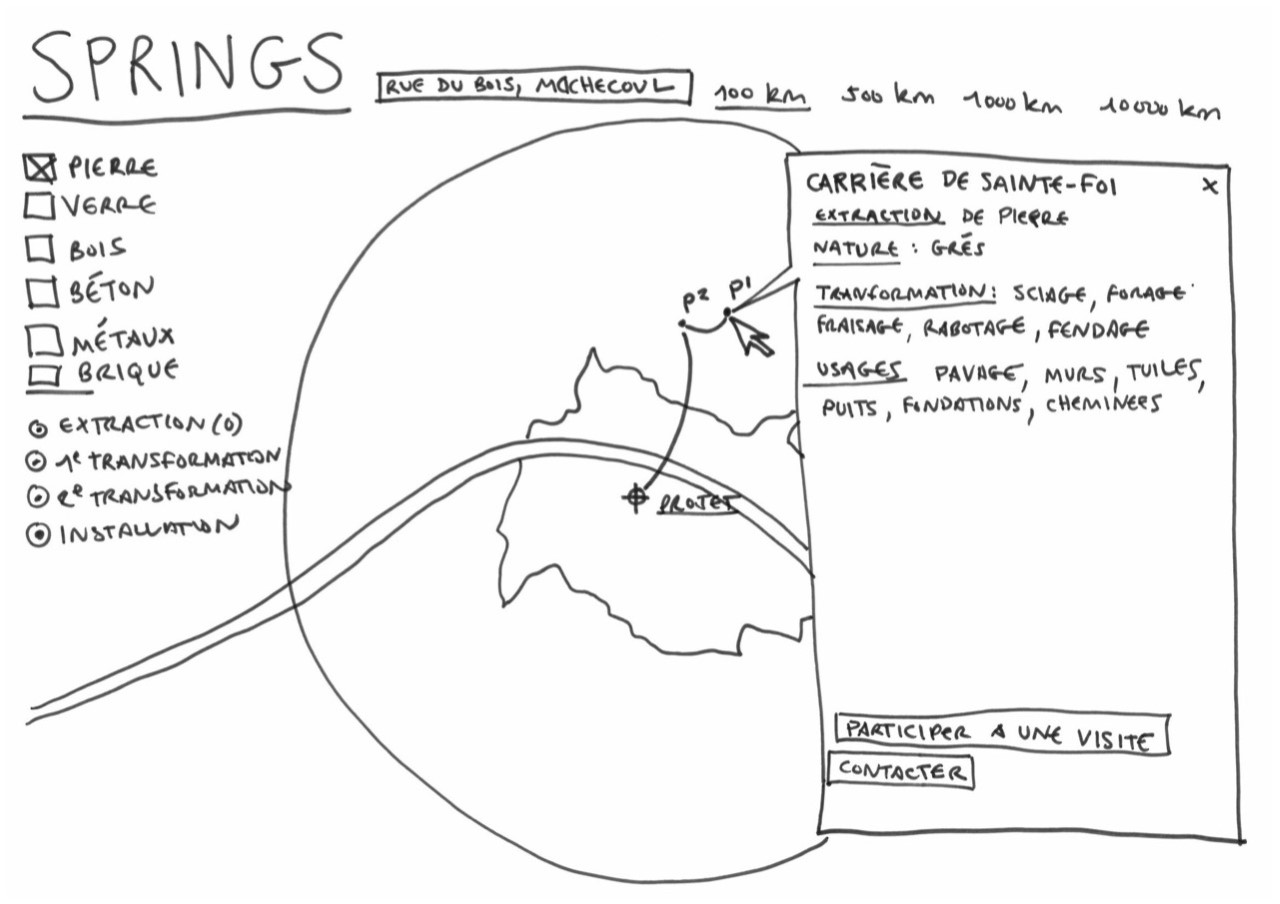 SPRINGS
RUE DU BOIS, MACHECOUL
100 km 500 km 1000 km 10000 km
PIERRE
VERRE
BOIS
BÉTON
MÉTAUX
BRIQUE
EXTRACTION (0)
1e TRANSFORMATION
2e TRANSFORMATION
INSTALLATION
P2 P1
PROJET
CARRIÈRE DE SAINTE-FOI x
EXTRACTION DE PIERRE
NATURE : GRÉS
TRANFORMATION: SCIAGE, FORAGE
FRAISAGE, RABOTAGE, FENDAGE
USAGES PAVAGE, MURS, TUILES,
PUITS, FONDATIONS, CHEMINEES
PARTICIPER A UNE VISITE
CONTACTER